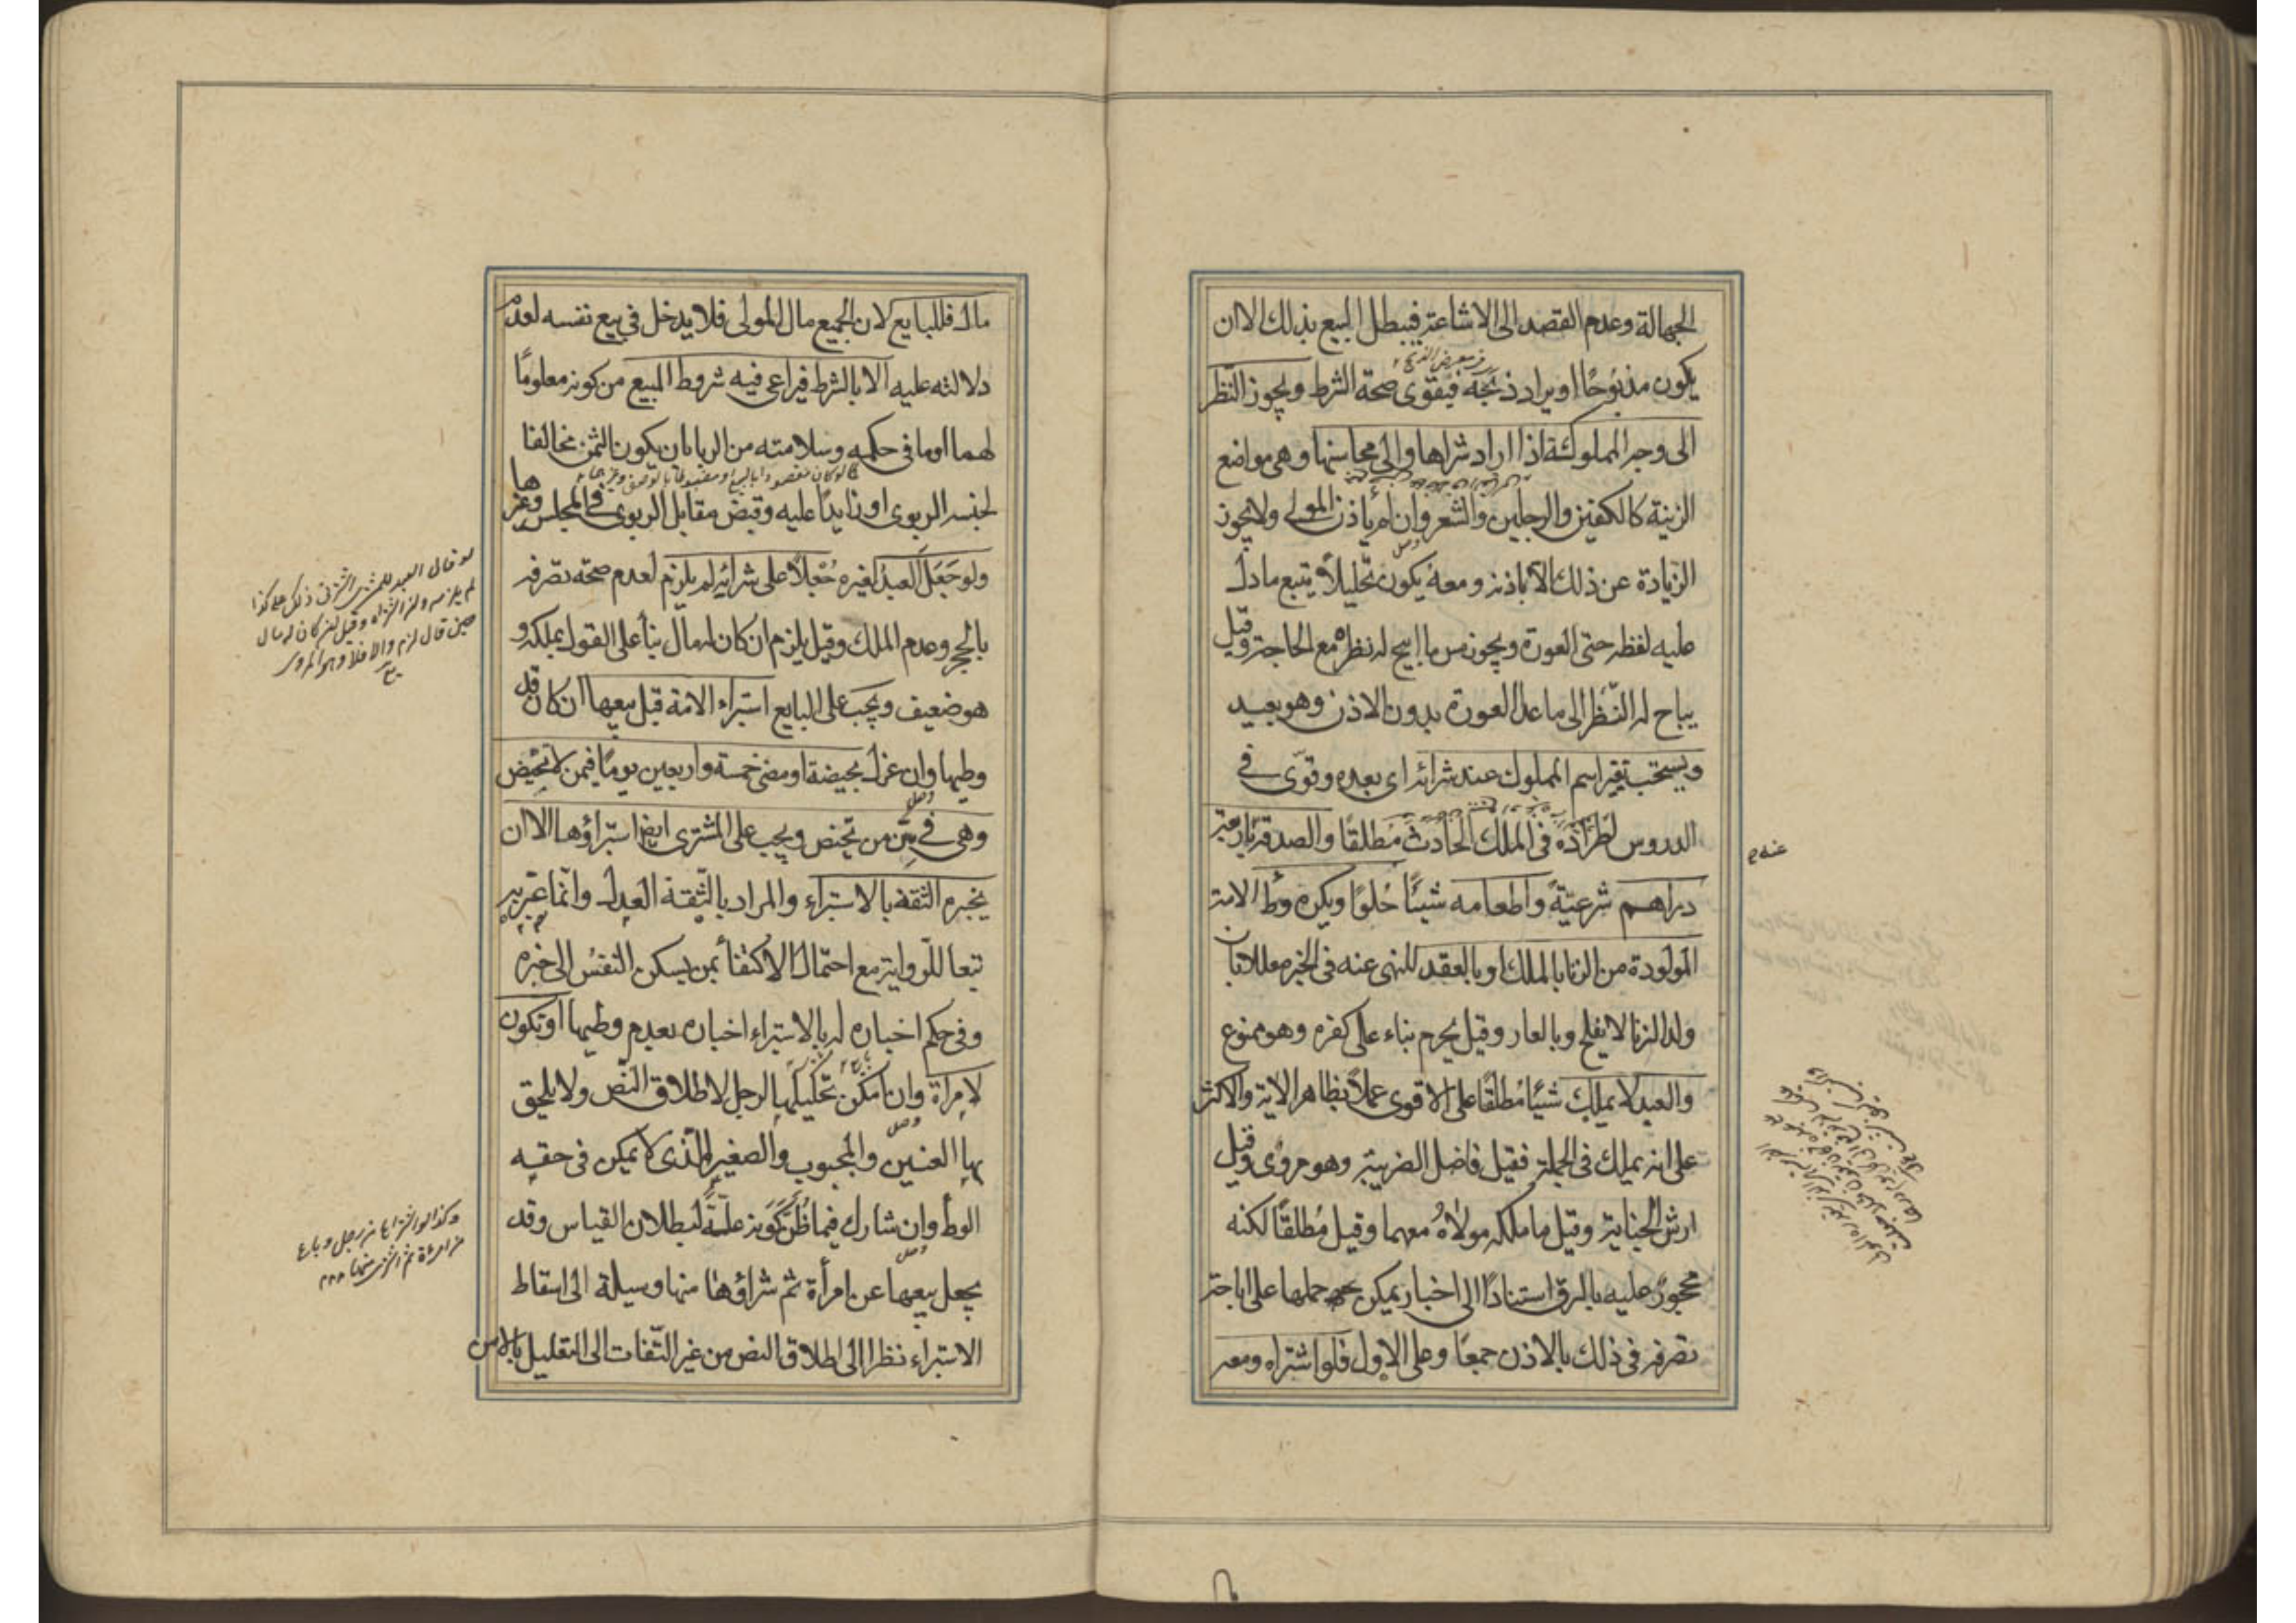 الجهالة وعدم القصد الى الاشاعة فيبطل البيع بذلك الا ان
يكون مذبوحًا او يراد ذبحه فيقوى صحة الشرط ويجوز النظر
الى وجه المملوكة اذا اراد شراها والى محاسنها وهى مواضع
الزينة كالكفين والرجلين والشعر وان لم يأذن المولى ولا يجوز
الزيادة عن ذلك الا باذنه ومعه يكون تحليلاً يتبع ما دل
عليه لفظه حتى العورة ويجوز مس ما ابيح له نظره مع الحاجة وقيل
يباح له النظر الى ما عدا العورة بدون الاذن وهو بعيد
ويستحب تغير اسم المملوك عند شرائه اى بعده وقوّى فى
الدروس اطراده فى الملك الحادث مطلقًا والصدقة باربعة
دراهم شرعيّة واطعامه شيئًا حُلوًا ويكره وطأ الامة
المولودة من الزنا بالملك او بالعقد للنهى عنه فى الخبر معللا بان
ولد الزنا لا يفلح وبالعار وقيل يحرم بناء على كفره وهو ممنوع
والعبد لا يملك شيئًا مُطلقًا على الاقوى عملاً بظاهر الاية والاكثر
على انه يملك فى الجملة فقيل فاضل الضريبة وهو مروى وقيل
ارش الجناية وقيل ما ملكه مولاهُ معهما وقيل مُطلقًا لكنه
محجورٌ عليه بالرق استنادًا الى اخبار يمكن حملها على اباحة
تصرفه فى ذلك بالاذن جمعًا وعلى الاول فلو اشتراه ومعه
عنه م
مال فللبايع لان الجميع مال المولى فلا يدخل فى بيع نفسه لعدم
دلالته عليه الا بالشرط فيراعى فيه شروط المبيع من كونه معلومًا
لهما او ما فى حكمه وسلامته من الربا بان يكون الثمن مخالفا
لجنسه الربوى او زايدًا عليه وقبض مقابل الربوى فى المجلس وغيرها
ولو جَعَلَ العبدُ لغيره جُعْلاً على شرائه لم يلزم لعدم صحة تصرفه
بالحجر وعدم الملك وقيل يلزم ان كان له مال بناءً على القول بملكه و
هو ضعيف ويجب على البايع استبراء الامة قبل بيعها ان كان قد
وطيها وان عزل بحيضة او مضى خمسة واربعين يومًا فيمن لا تحيض
وهى فى سِنّ من تحيض ويجب على المشترى ايضا استبراؤها الا ان
يخبره الثقة بالاستبراء والمراد بالثقة العدل وانّما عبّر به
تبعا للرواية مع احتمال الاكتفاء بمن يسكن النفسُ الى خبره
وفى حكم اخباره له بالاستبراء اخباره بعدم وطيها او تكون
لامراة وان امكن تحليلها الرجل لاطلاق النّص ولا يلحق
بها العنين والمجبوب والصغير الذى لا يمكن فى حقه
الوطأ وان شارك فيما ظُنّ كَونه علّةً لبطلان القياس وقد
يجعل بيعها عن امرأة ثم شراؤها منها وسيلة الى اسقاط
الاستبراء نظرا الى اطلاق النص من غير التفات الى التعليل بالامن
لو قال العبد للمشترى اشترنى ذلك على كذا
لم يلزمه ولو اشتراه وقيل ان كان له مال
حين قال لزم والا فلا وهو المروى
وكذا لو اشتراها من رجل وباع
من امرءة ثم اشترى منها